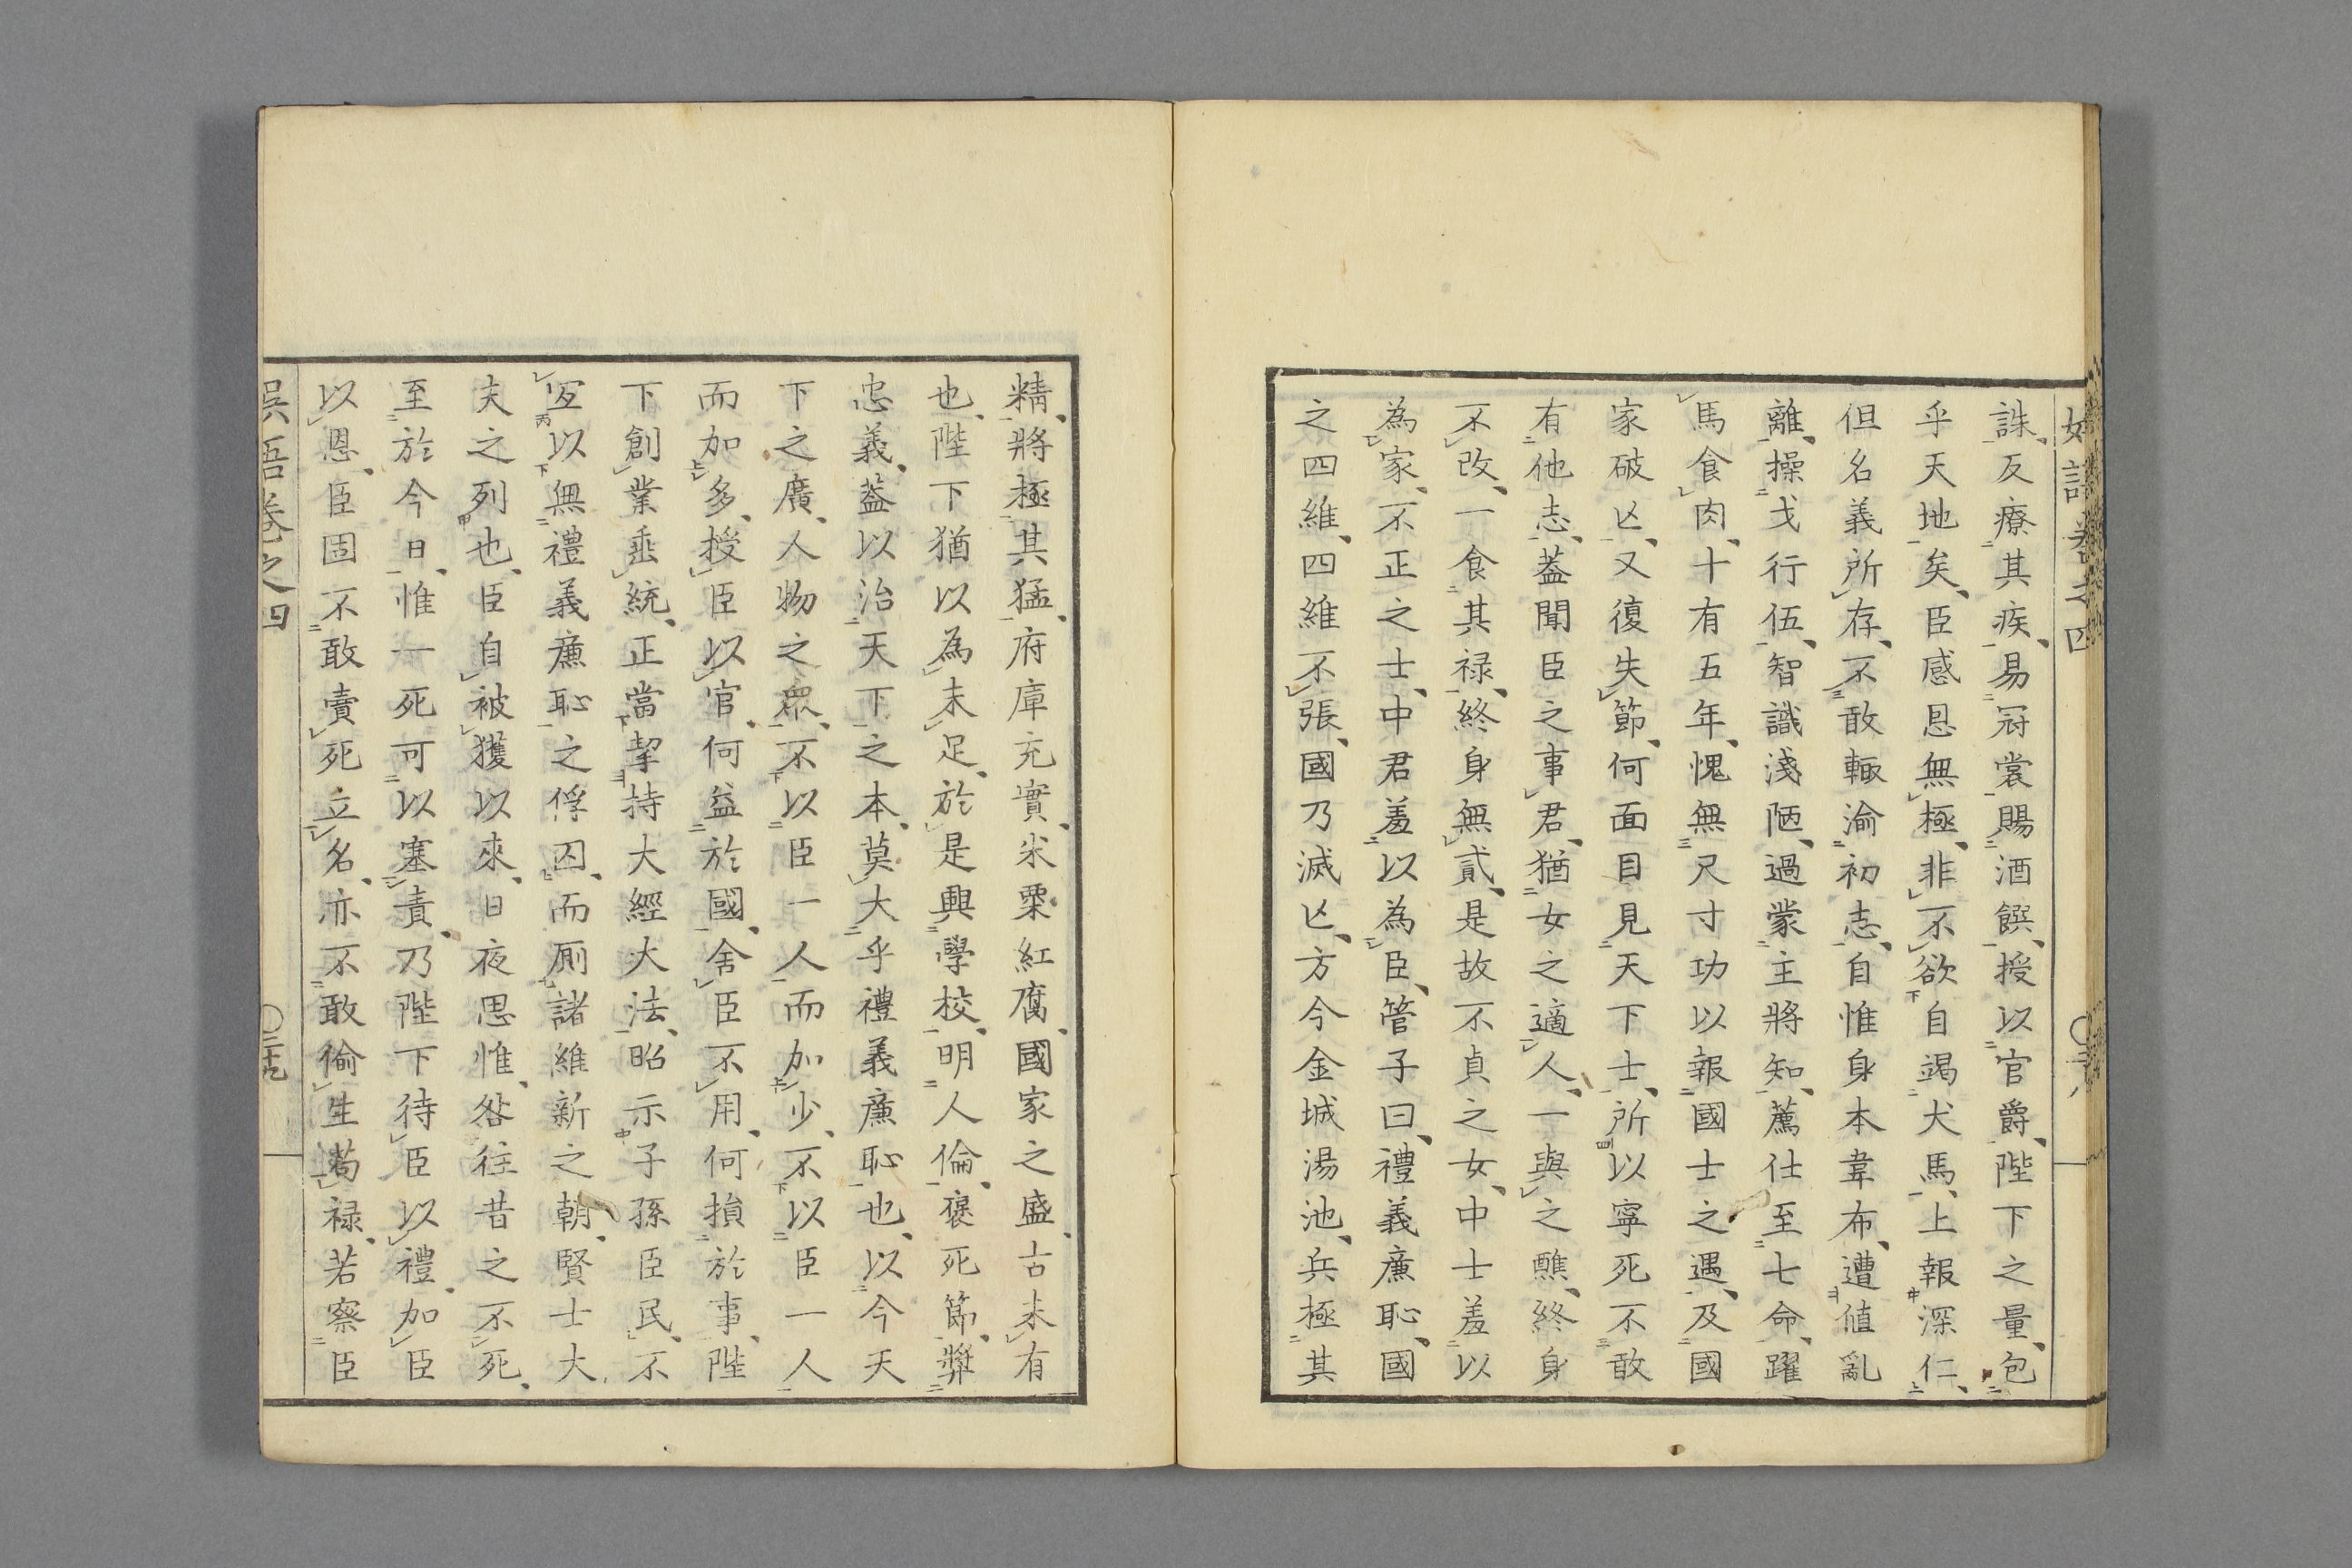 誅、反療其疾、易冠裳賜酒饌、授以官爵、陛下之量、包
乎天地矣、臣感恩無極、非不欲自竭犬馬、上報深仁、
但名義所存、不敢輙渝初志、自惟身本韋布、遭値亂
離、操戈行伍、智識淺陋、過蒙主將知、薦仕至七命、躍
馬食肉、十有五年、愧無尺寸功以報國士之遇、及國
家破亾、又復失節、何面目見天下士、所以寧死不敢
有他志、葢聞臣之事君、猶女之適人、一與之醮、終身
不改、一食其禄、終身無貳、是故不貞之女、中士羞以
為家、不正之士、中君羞以為臣、管子曰、禮義廉恥、國
之四維、四維不張、國乃滅亾、方今金城湯池、兵極其
精、將極其猛、府庫充實、米粟紅腐、國家之盛、古未有
也、陛下猶以為未足、於是興學校、明人倫、褒死節、奬
忠義、葢以治天下之本、莫大乎禮義廉恥也、以今天
下之廣、人物之衆、不以臣一人而加少、不以臣一人
而加多、授臣以官、何益於國、舍臣不用、何損於事、陛
下創業垂統、正當挈持大經大法、昭示子孫臣民、不
冝以無禮義廉恥之俘囚、而厠諸維新之朝、賢士大
夫之列也、臣自被獲以來、日夜思惟、咎往昔之不死、
至於今日、惟一死可以塞責、乃陛下待臣以禮、加臣
以恩、臣固不敢賣死立名、亦不敢偷生茍禄、若察臣
吳語卷之四
〇三十九